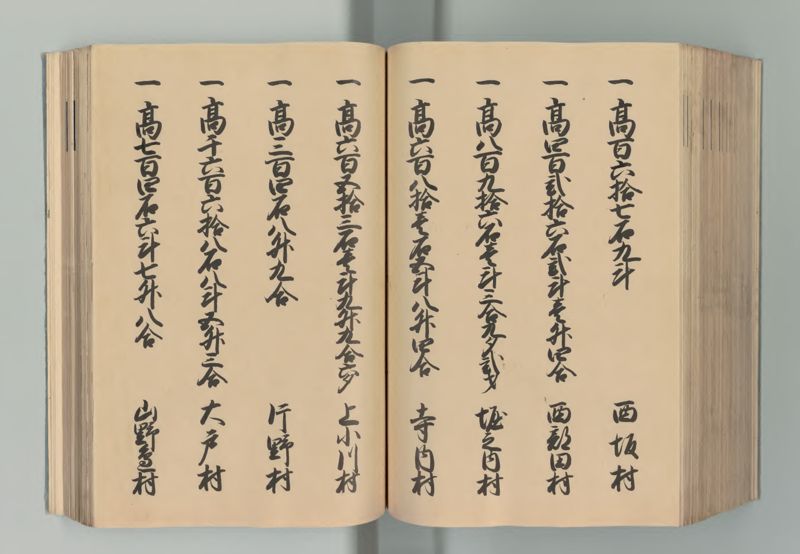 一高百六拾七石九斗 西坂村
一高四百弐拾六石弐斗壱升四合 西郡田村
一高八百九拾六石壱斗三合九夕弐才 堀之内村
一高六百八拾壱石五斗八升四合 寺内村
一高六百五拾三石壱斗九升九合六夕 上小川村
一高三百四石八升九合 片野村
一高千六百六拾八石八斗五升三合 大戸村
一高七百四石六斗七升八合 山野邉村